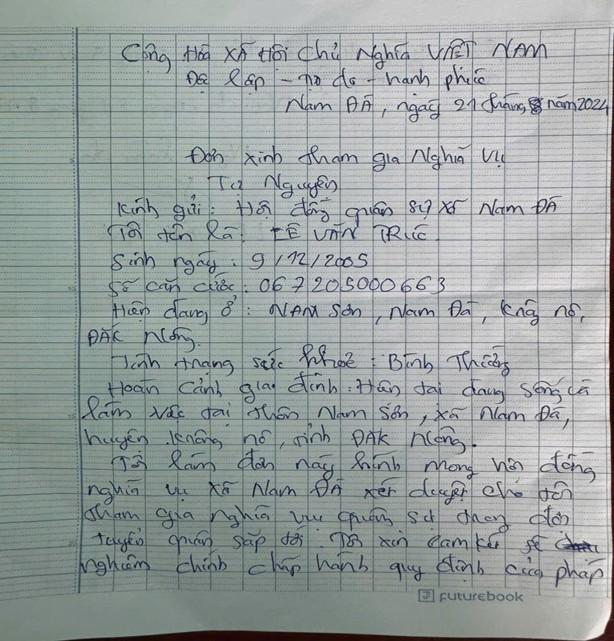 Cộng Hòa xã Hội Chủ Nghĩa VIỆT NAM
Độc lập - tự do - hạnh phúc
Nam ĐÀ, ngày 21 tháng 8 năm 2024
Đơn xinh tham gia Nghĩa Vụ
Tự Nguyện
Kính gửi: Hội đồng quân sự xã Nam ĐÀ
Tôi tên là: LÊ VĂN TRÚC.
Sinh ngày: 9/12/2005
Số căn cước: 067205000663
Hiện đang ở: NAM Sơn, Nam Đà, Krông nô,
ĐĂK NÔNG.
Tình trạng sức khoẻ: Bình Thường
Hoàn cảnh gia đình: Hiện tại đang sống và
làm việc tại thôn Nam Sơn, xã Nam Đà,
huyện Krông nô, tỉnh ĐĂK NÔNG.
Tôi làm đơn này kính mong hội đồng
nghĩa vụ xã Nam ĐÀ xét duyệt cho tôi
tham gia nghĩa vụ quân sự trong đợt
tuyển quân sắp tới. Tôi xin cam kết sẽ
nghiêm chỉnh chấp hành quy định của pháp
futurebook